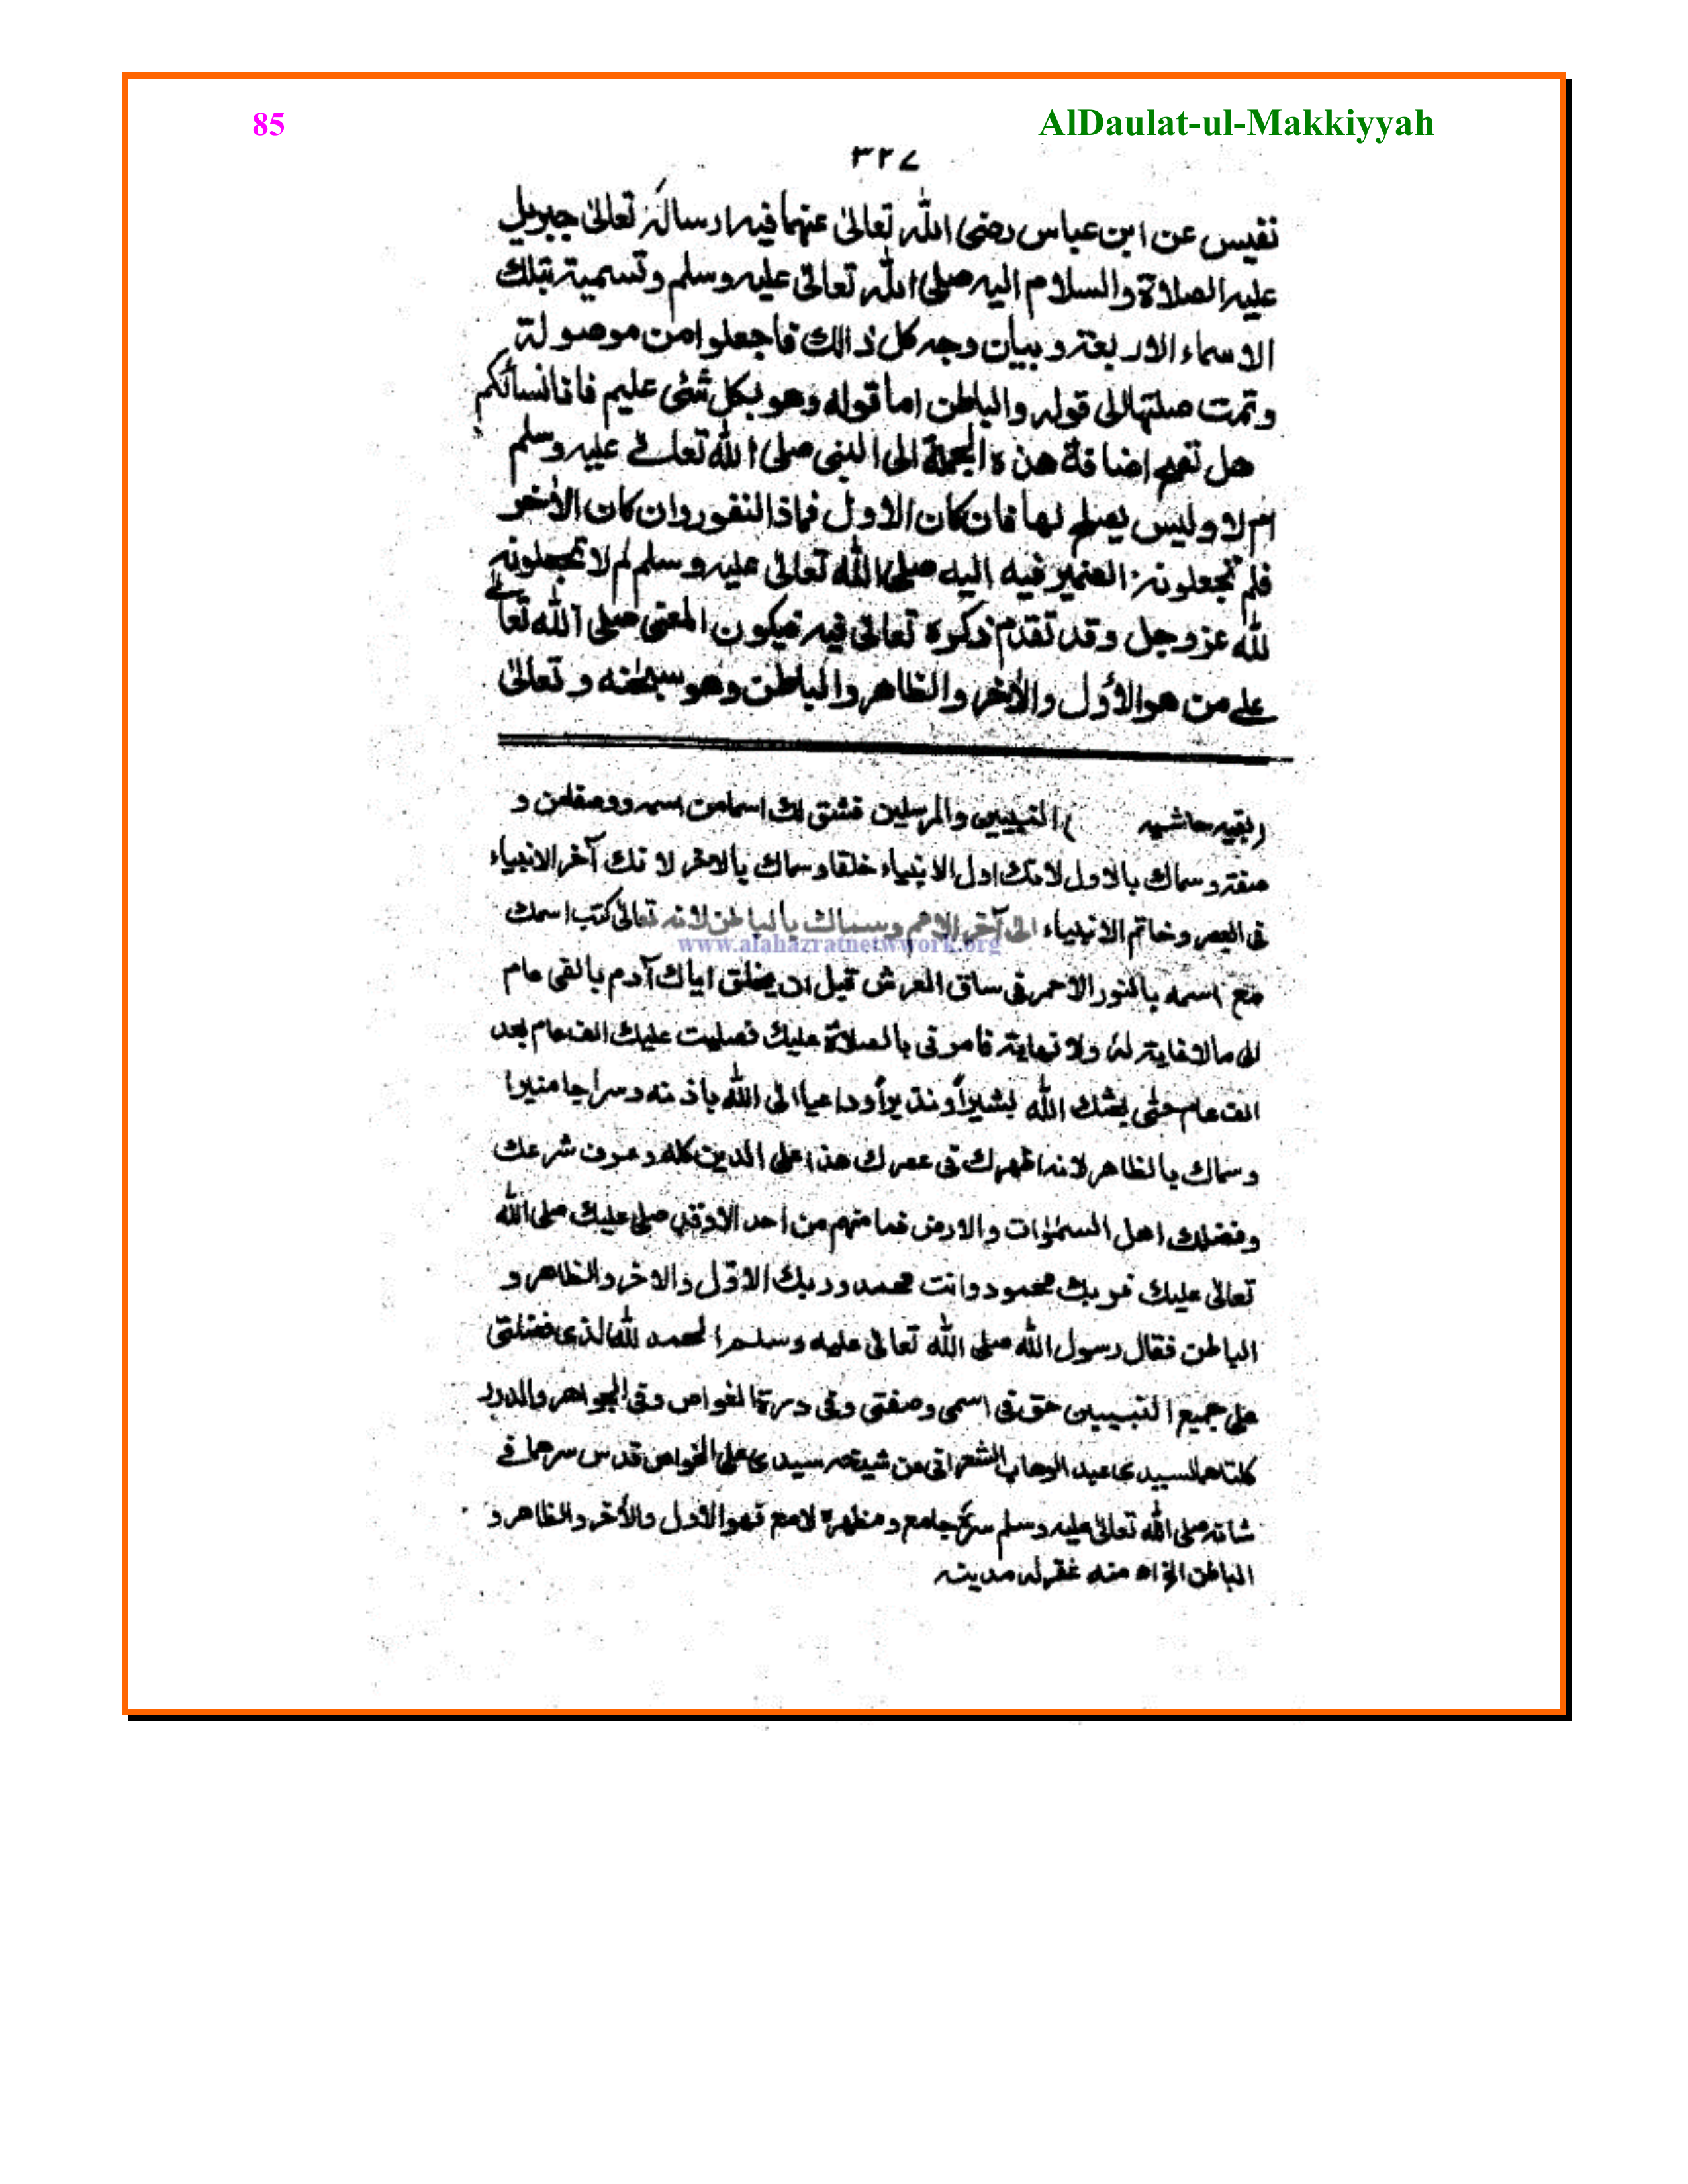 85
AlDaulat-ul-Makkiyyah
٣٢٧
نفيس عن ابن عباس رضى الله تعالىٰ عنهما فيه ارسالہٗ تعالىٰ جبريل
عليه الصلاة والسلام اليه صلى الله تعالىٰ عليه وسلم وتسمية بتلك
الاسماء الاربعة وبيان وجه كل ذالك فاجعلوا من موصولة
وتمت صلتها الى قوله والباطن اما قوله وهو بكل شئى عليم فانا نسائلكم
هل تصح اضافة هذه الجملة الى النبى صلى الله تعالىٰ عليه وسلم
ام لا وليس يصلح لها فان كان الاول فماذا النفور وان كان الاٰخر
فلم تجعلونه الضمير فيه اليه صلى الله تعالىٰ عليه وسلم لم لا تجعلونه
لله عزوجل وقد تقدم ذكره تعالىٰ فيه فيكون المعنى صلى الله تعالىٰ
على من هو الأول والاٰخر والظاهر والباطن وهو سبحٰنه وتعالىٰ
(بقيه حاشيه ) النبيين والمرسلين فشق لك اسما من اسمه ووصفا من و
صفته وسماك بالاول لانك اول الانبياء خلقا وسماك بالاخر لانك آخر الانبياء
فى العصر وخاتم الانبياء الى آخر الامم وسماك بالباطن لانه تعالىٰ كتب اسمك
www.alahazratnetwork.org
مع اسمه بالنور الاحمر فى ساق العرش قبل ان يخلق اباك آدم بالفى عام
الى مالا غاية له ولا نهاية فامرنى بالصلاة عليك فصليت عليك الف عام بعد
الف عام حتى بعثك الله بشيراً ونذيراً وداعيا الى الله باذنه وسراجا منيرا
وسماك بالظاهر لانه اظهرك فى عصرك هذا على الدين كله وعرف شرعك
وفضلك اهل السمٰوات والارض فما منهم من احد الا وقد صلى عليك صلى الله
تعالىٰ عليك فربك محمود وانت محمد وربك الاوّل والاخر والظاهر و
الباطن فقال رسول الله صلى الله تعالىٰ عليه وسلم الحمد لله الذى فضلنى
على جميع النبيين حتى فى اسمى وصفتى وفى درة الغواص وفى الجواهر والدرر
كلتاهما لسيدى عبد الوهاب الشعرانى عن شيخه سيدى على الخواص قدس سرهما فى
شانه صلى الله تعالىٰ عليه وسلم جامع ومظهره لامع فهو الاول والأخر والظاهر و
الباطن الخ اه منه غفرله مدينه